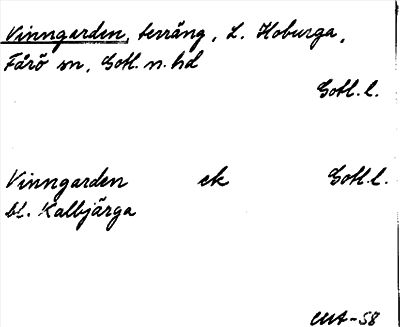 Vinngarden, terräng, L. Hoburga,
Fårö sn, Gotl. n. hd
Gotl. l.
Vinngarden ek Gotl. l.
bl. Kalbjärga
-58